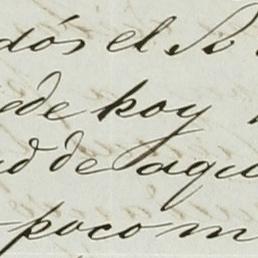 dós el So
ede hoy
ad de aqu
poco m